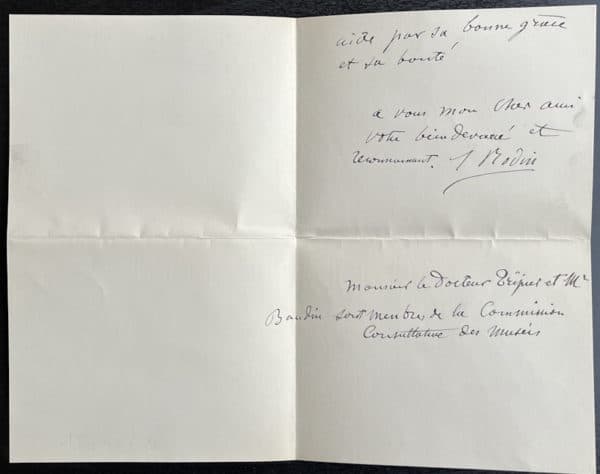 aidé par sa bonne grâce
et sa bonté
a vous mon cher ami
votre bien devoué et
reconnaissant. A Rodin
Monsieur le Docteur Tripier et Mr
Baudin sont membres de la Commission
Consultative des Musées